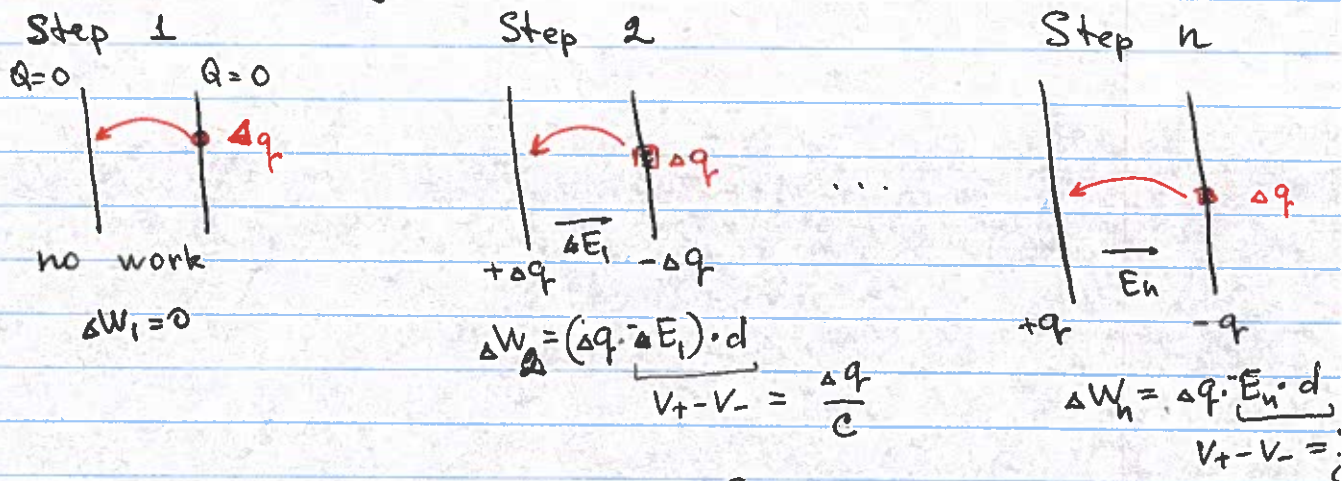 Step 1
Q=0 Q=0
Δq
no work
ΔW₁=0
Step 2
Δq
ΔE₁
+Δq -Δq
ΔW₂=(Δq·ΔE₁)·d
V₊-V₋ = Δq/C
...
Step n
Δq
Eₙ
+q -q
ΔWₙ = Δq·Eₙ·d
V₊-V₋ =